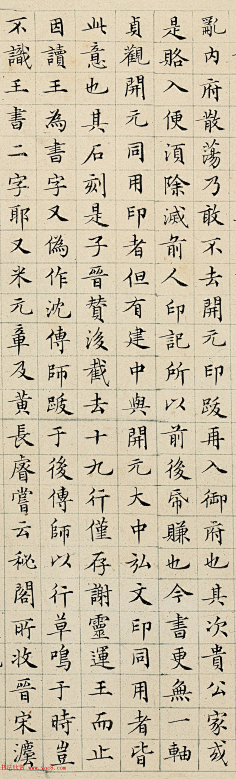 亂內府散蕩乃敢不去開元印跋再入御府也其次貴公家或
是賂入便須除滅前人印記所以前後帋賺也今書更無一軸
貞觀開元同用印者但有建中與開元大中弘文印同用者皆
此意也其石刻是子晉贊後截去十九行僅存謝靈運王而止
因讀王為書字又偽作沈傳師跋于後傳師以行草鳴于時豈
不識王書二字耶又米元章及黃長睿嘗云秘閣所收晉宋灋